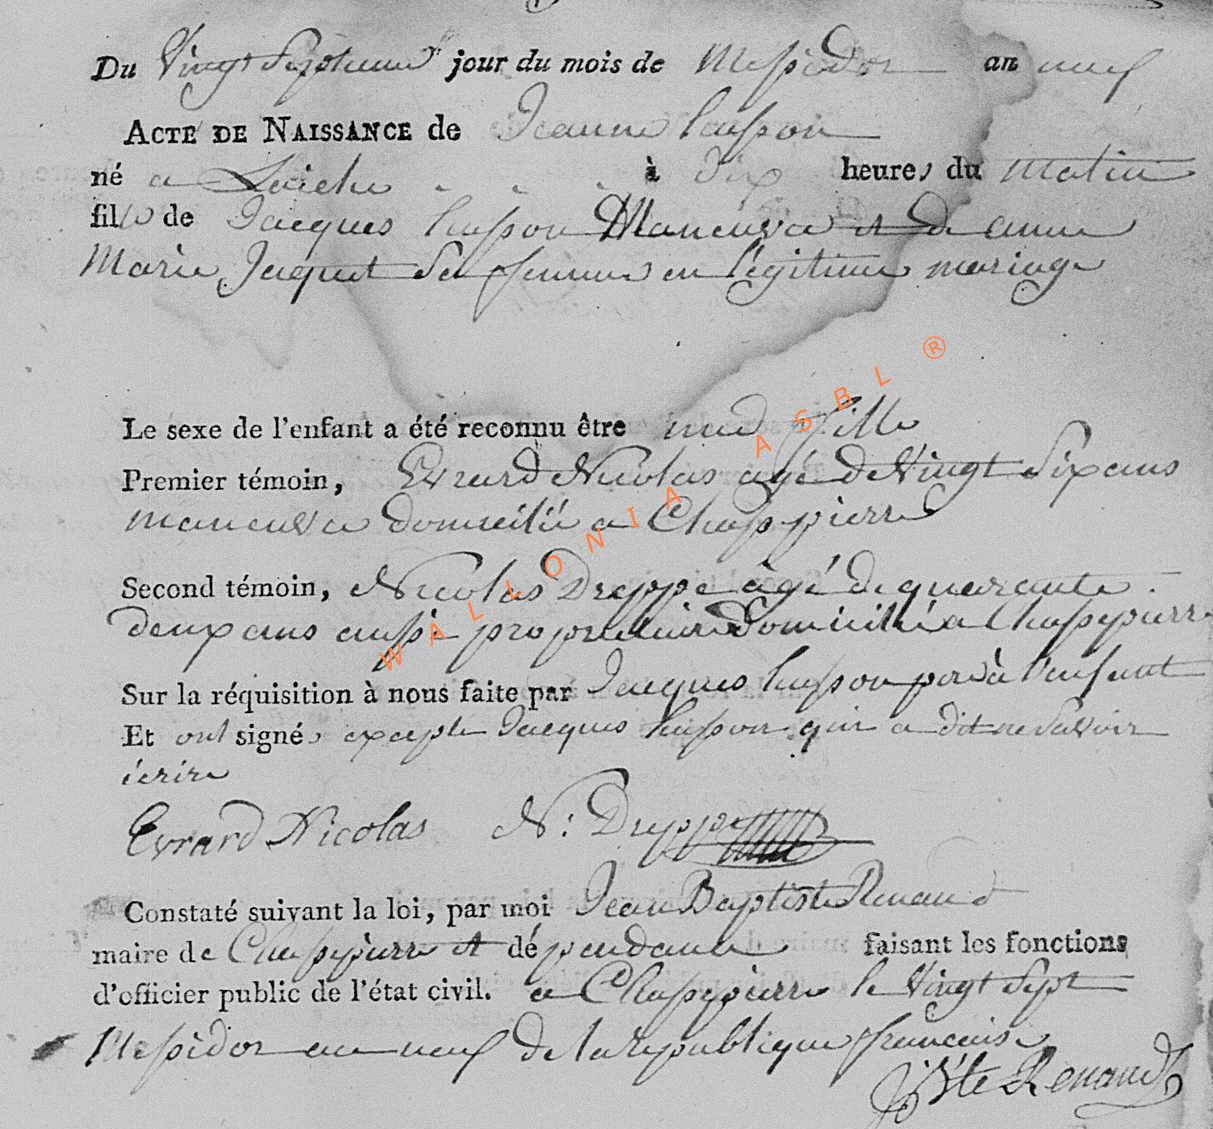 Du Vingt Septieme jour du mois de Messidor an neuf
ACTE DE NAISSANCE de Jeanne husson
né a Laiche à dix heures du matin
fille de Jacques husson Maneuvre et de anne
Marie Jaquet Sa femme en légitime mariage
Le sexe de l'enfant a été reconnu être une fille
Premier témoin, Evrard Nicolas agé de Vingt Six ans
maneuvre domicilié a Chassepierre
Second témoin, Nicolas Dreppe àgé de quarante
deux ans aussi proprietaire Domicilié a Chassepierre
Sur la réquisition à nous faite par Jacques husson pere à l'enfant
Et ont signé excepte Jacques husson qui a dit ne savoir
écrire
Evrard Nicolas N: Dreppe
Constaté suivant la loi, par moi Jean Baptiste Renaud
maire de Chassepierre et dépendance faisant les fonctions
d'officier public de l'état civil. a Chassepierre le Vingt Sept
Messidor an neuf de la republique francaise
JBte Renaud
WALLONIA ASBL ®